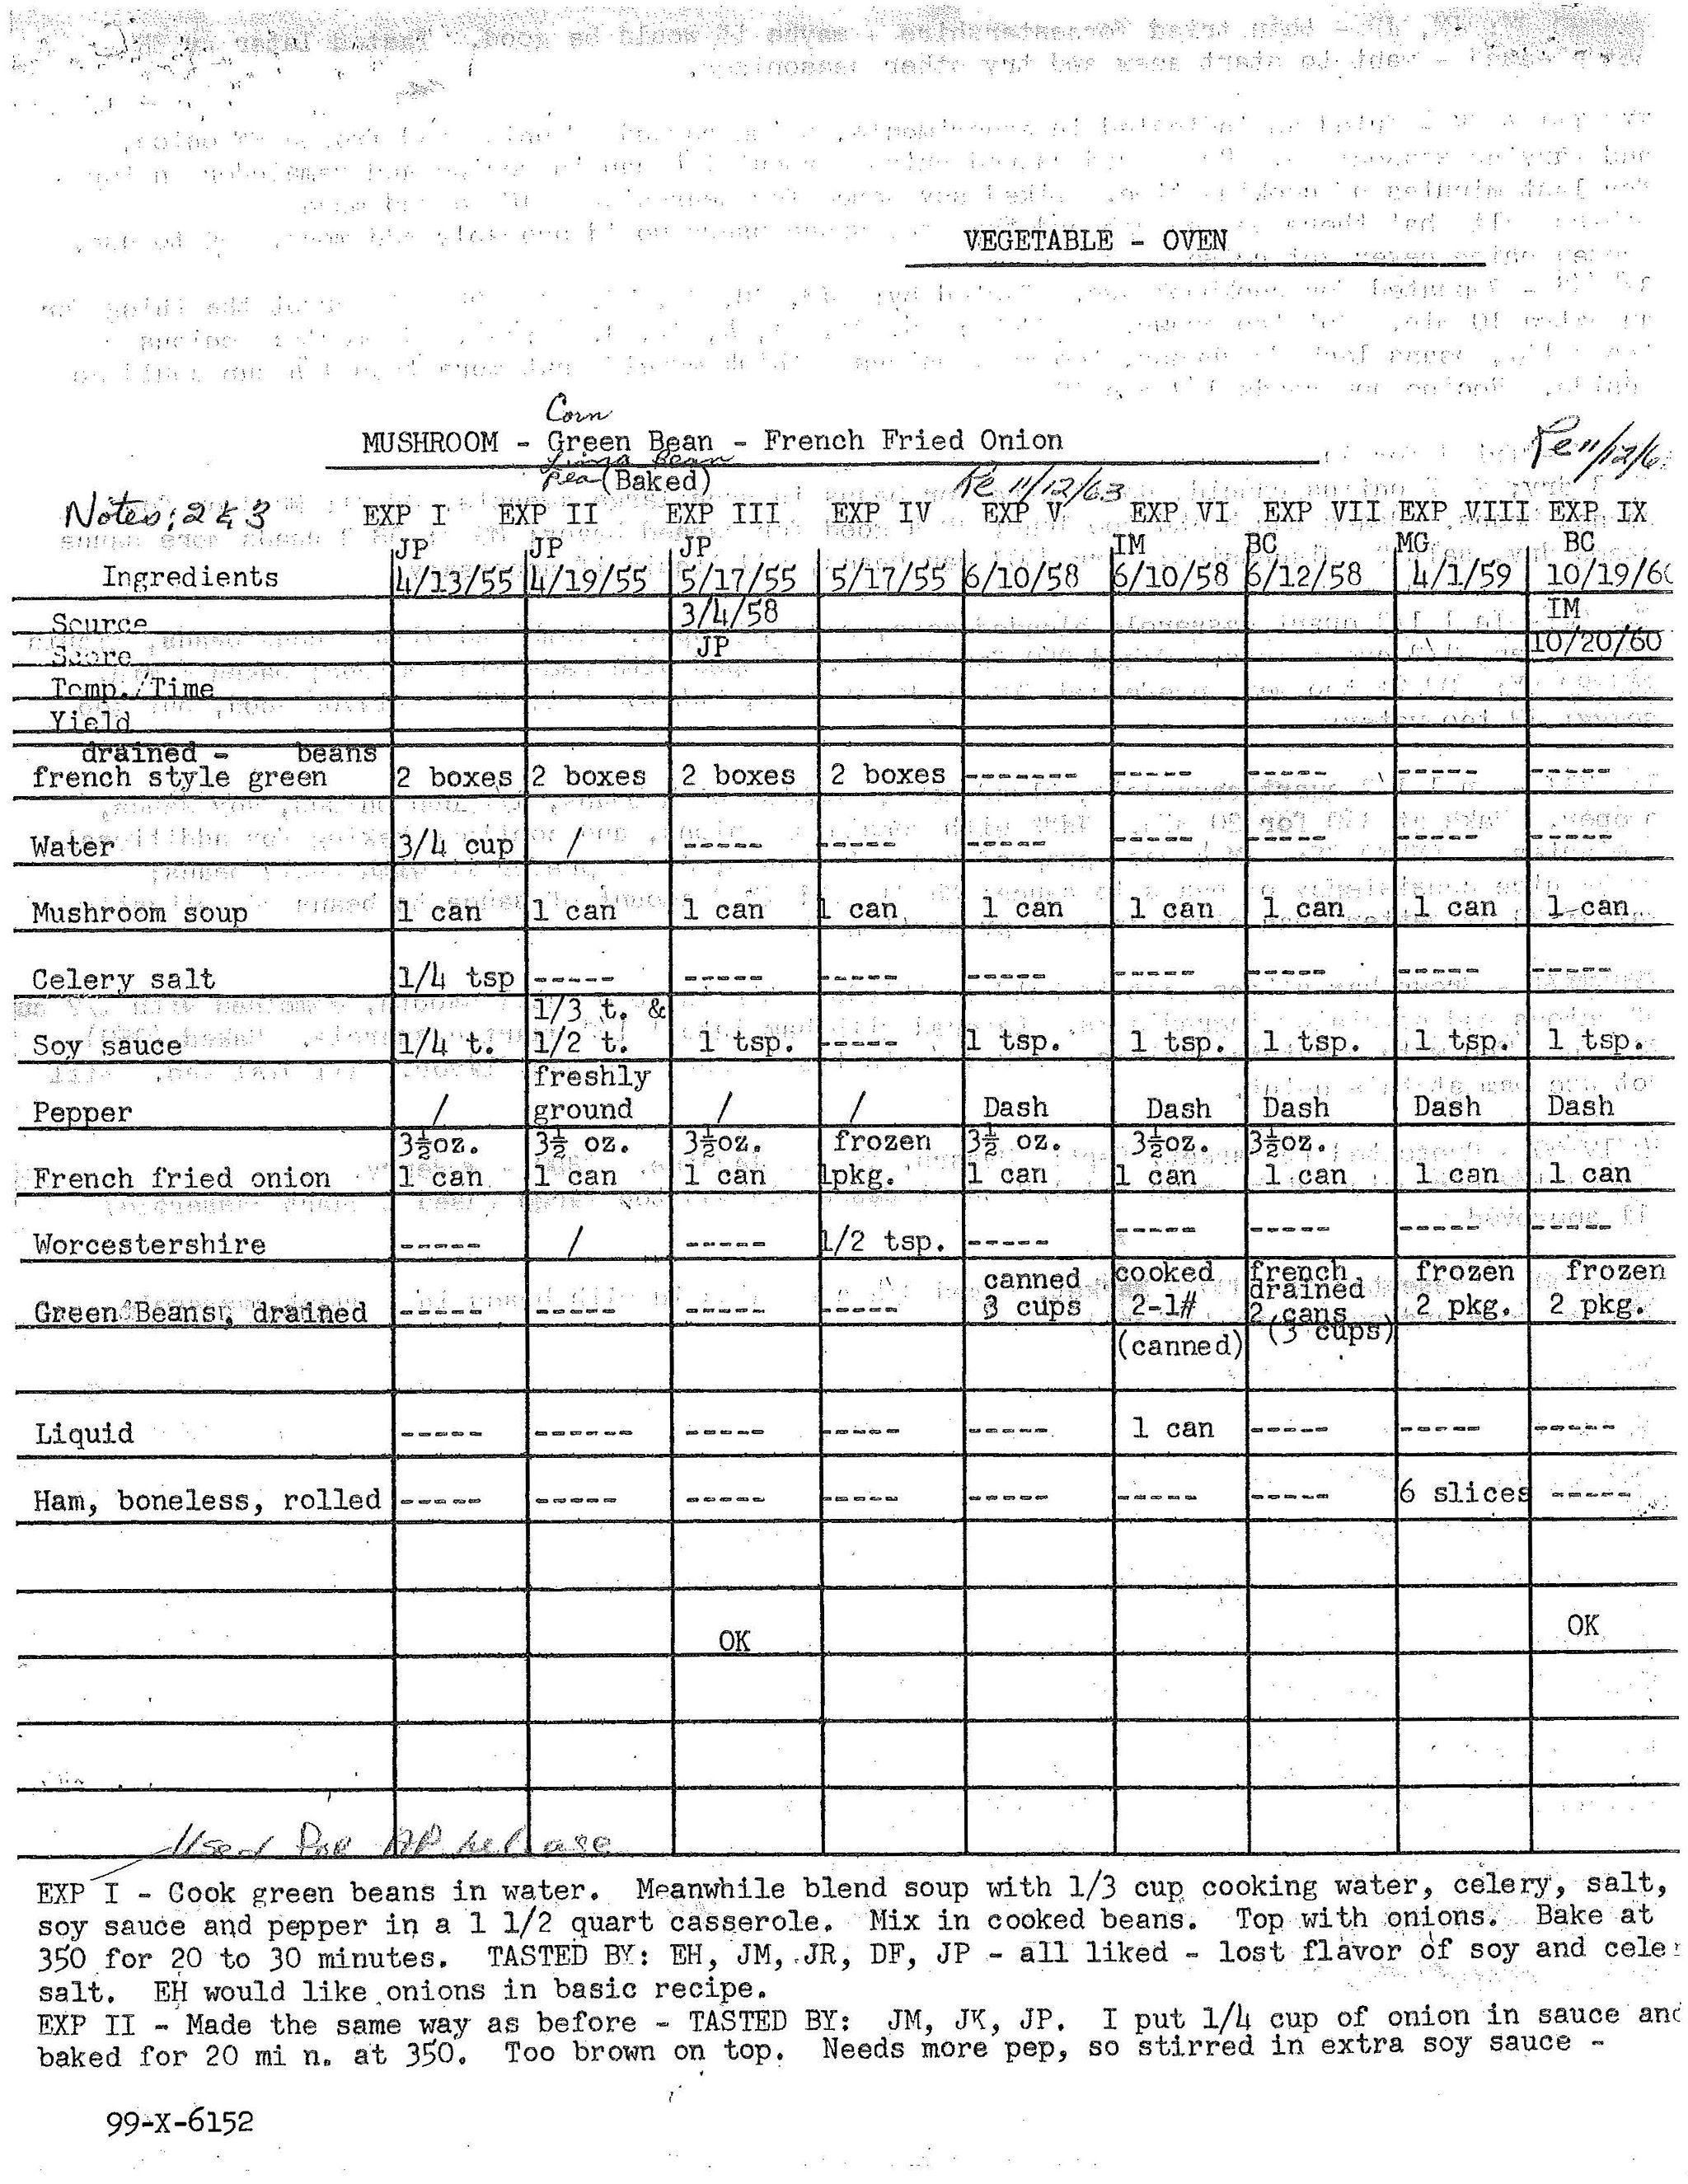 VEGETABLE - OVEN
Corn
MUSHROOM - Green Bean - French Fried Onion
Lima Bean
Pea (Baked)
Re 11/12/6
Re 11/12/63
Notes; 2 & 3
EXP I EXP II EXP III EXP IV EXP V EXP VI EXP VII EXP VIII EXP IX
JP JP JP IM BC MG BC
Ingredients 4/13/55 4/19/55 5/17/55 5/17/55 6/10/58 6/10/58 6/12/58 4/1/59 10/19/60
Source 3/4/58 IM
Score JP 10/20/60
Temp./Time
Yield
drained - beans
french style green 2 boxes 2 boxes 2 boxes 2 boxes ------- ----- ----- ----- -----
Water 3/4 cup / ----- ----- ----- ----- ----- ----- -----
Mushroom soup 1 can 1 can 1 can 1 can 1 can 1 can 1 can 1 can 1 can
Celery salt 1/4 tsp ----- ----- ----- ----- ----- ----- ----- -----
1/3 t. &
Soy sauce 1/4 t. 1/2 t. 1 tsp. ----- 1 tsp. 1 tsp. 1 tsp. 1 tsp. 1 tsp.
freshly
Pepper / ground / / Dash Dash Dash Dash Dash
3½oz. 3½ oz. 3½oz. frozen 3½ oz. 3½oz. 3½oz.
French fried onion 1 can 1 can 1 can 1pkg. 1 can 1 can 1 can 1 can 1 can
Worcestershire ----- / ----- 1/2 tsp. ----- ----- ----- ----- -----
canned cooked french frozen frozen
drained
Green Beans, drained ----- ----- ----- ----- 3 cups 2-1# 2 cans 2 pkg. 2 pkg.
(canned) (3 cups)
Liquid ----- ------ ----- ----- ----- 1 can ----- ----- -----
Ham, boneless, rolled ----- ----- ----- ----- ----- ----- ----- 6 slices -----
OK OK
Used for AP release
EXP I - Cook green beans in water. Meanwhile blend soup with 1/3 cup cooking water, celery, salt,
soy sauce and pepper in a 1 1/2 quart casserole. Mix in cooked beans. Top with onions. Bake at
350 for 20 to 30 minutes. TASTED BY: EH, JM, JR, DF, JP - all liked - lost flavor of soy and celer
salt. EH would like onions in basic recipe.
EXP II - Made the same way as before - TASTED BY: JM, JK, JP. I put 1/4 cup of onion in sauce and
baked for 20 mi n. at 350. Too brown on top. Needs more pep, so stirred in extra soy sauce -
99-X-6152